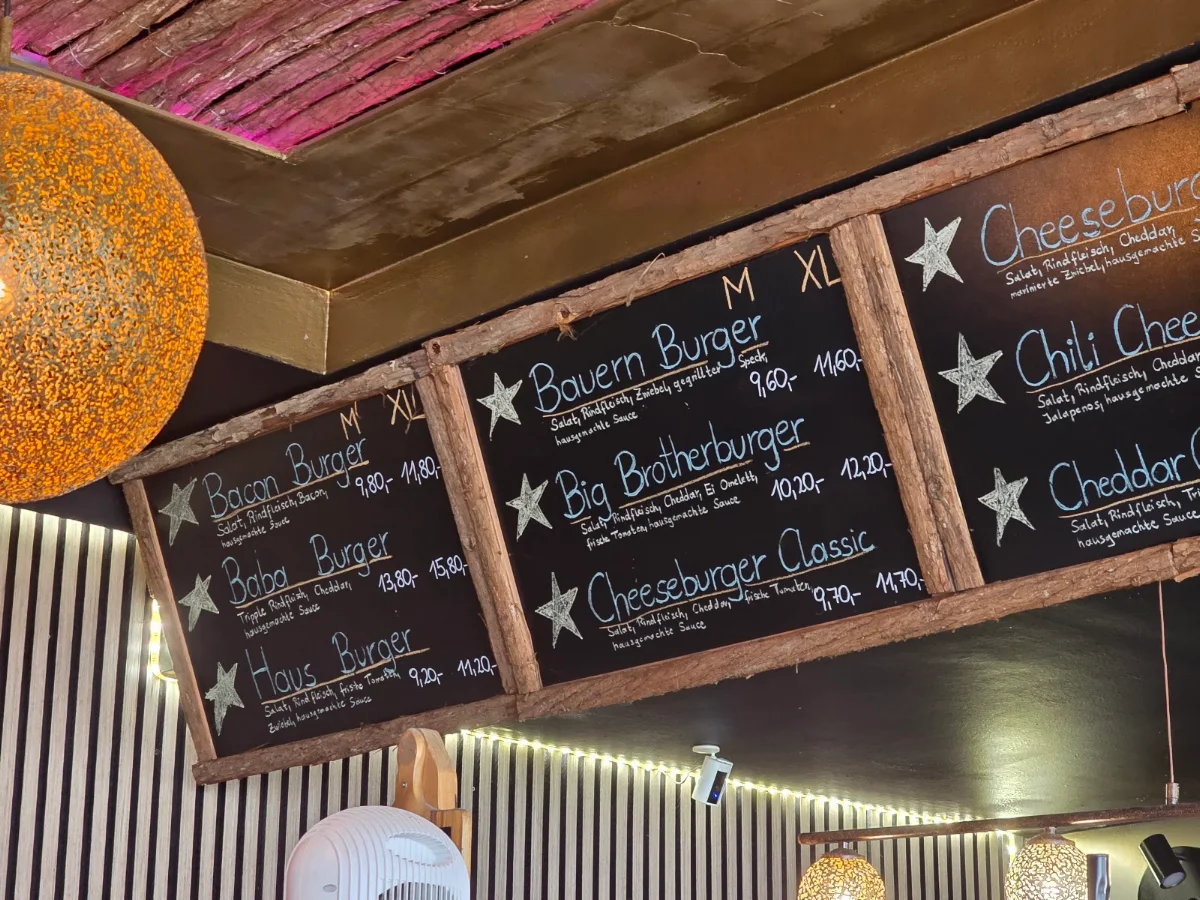 M XL
Bacon Burger
Salat, Rindfleisch, Bacon, 9,80,- 11,80,-
hausgemachte Sauce
Baba Burger
Tripple Rindfleisch, Cheddar, 13,80,- 15,80,-
hausgemachte Sauce
Haus Burger
Salat, Rindfleisch, frische Tomaten, 9,20,- 11,20,-
Zwiebel, hausgemachte Sauce
M XL
Bauern Burger
Salat, Rindfleisch, Zwiebel, gegrillter Speck, 9,60,- 11,60,-
hausgemachte Sauce
Big Brotherburger
Salat, Rindfleisch, Cheddar, Ei Omelett, 10,20,- 12,20,-
frische Tomaten, hausgemachte Sauce
Cheeseburger Classic
Salat, Rindfleisch, Cheddar, frische Tomaten, 9,70,- 11,70,-
hausgemachte Sauce
Cheeseburg
Salat, Rindfleisch, Cheddar,
marinierte Zwiebel, hausgemachte S
Chili Chee
Salat, Rindfleisch, Chedda
Jalapenos, hausgemachte S
Cheddar
Salat, Rindfleisch, T
hausgemachte S